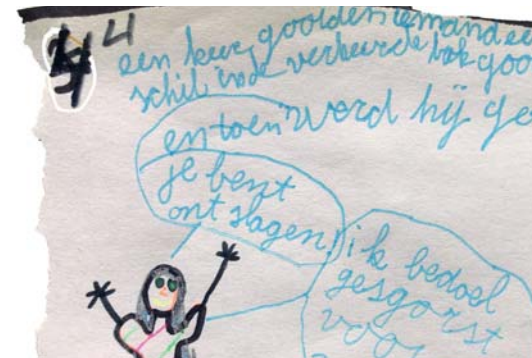 4
een keer goolden iemand ee
schil verkeurde bak goo
en toen word hij ge
je bent
ont slagen!
ik bedoel
gesgorst
voor